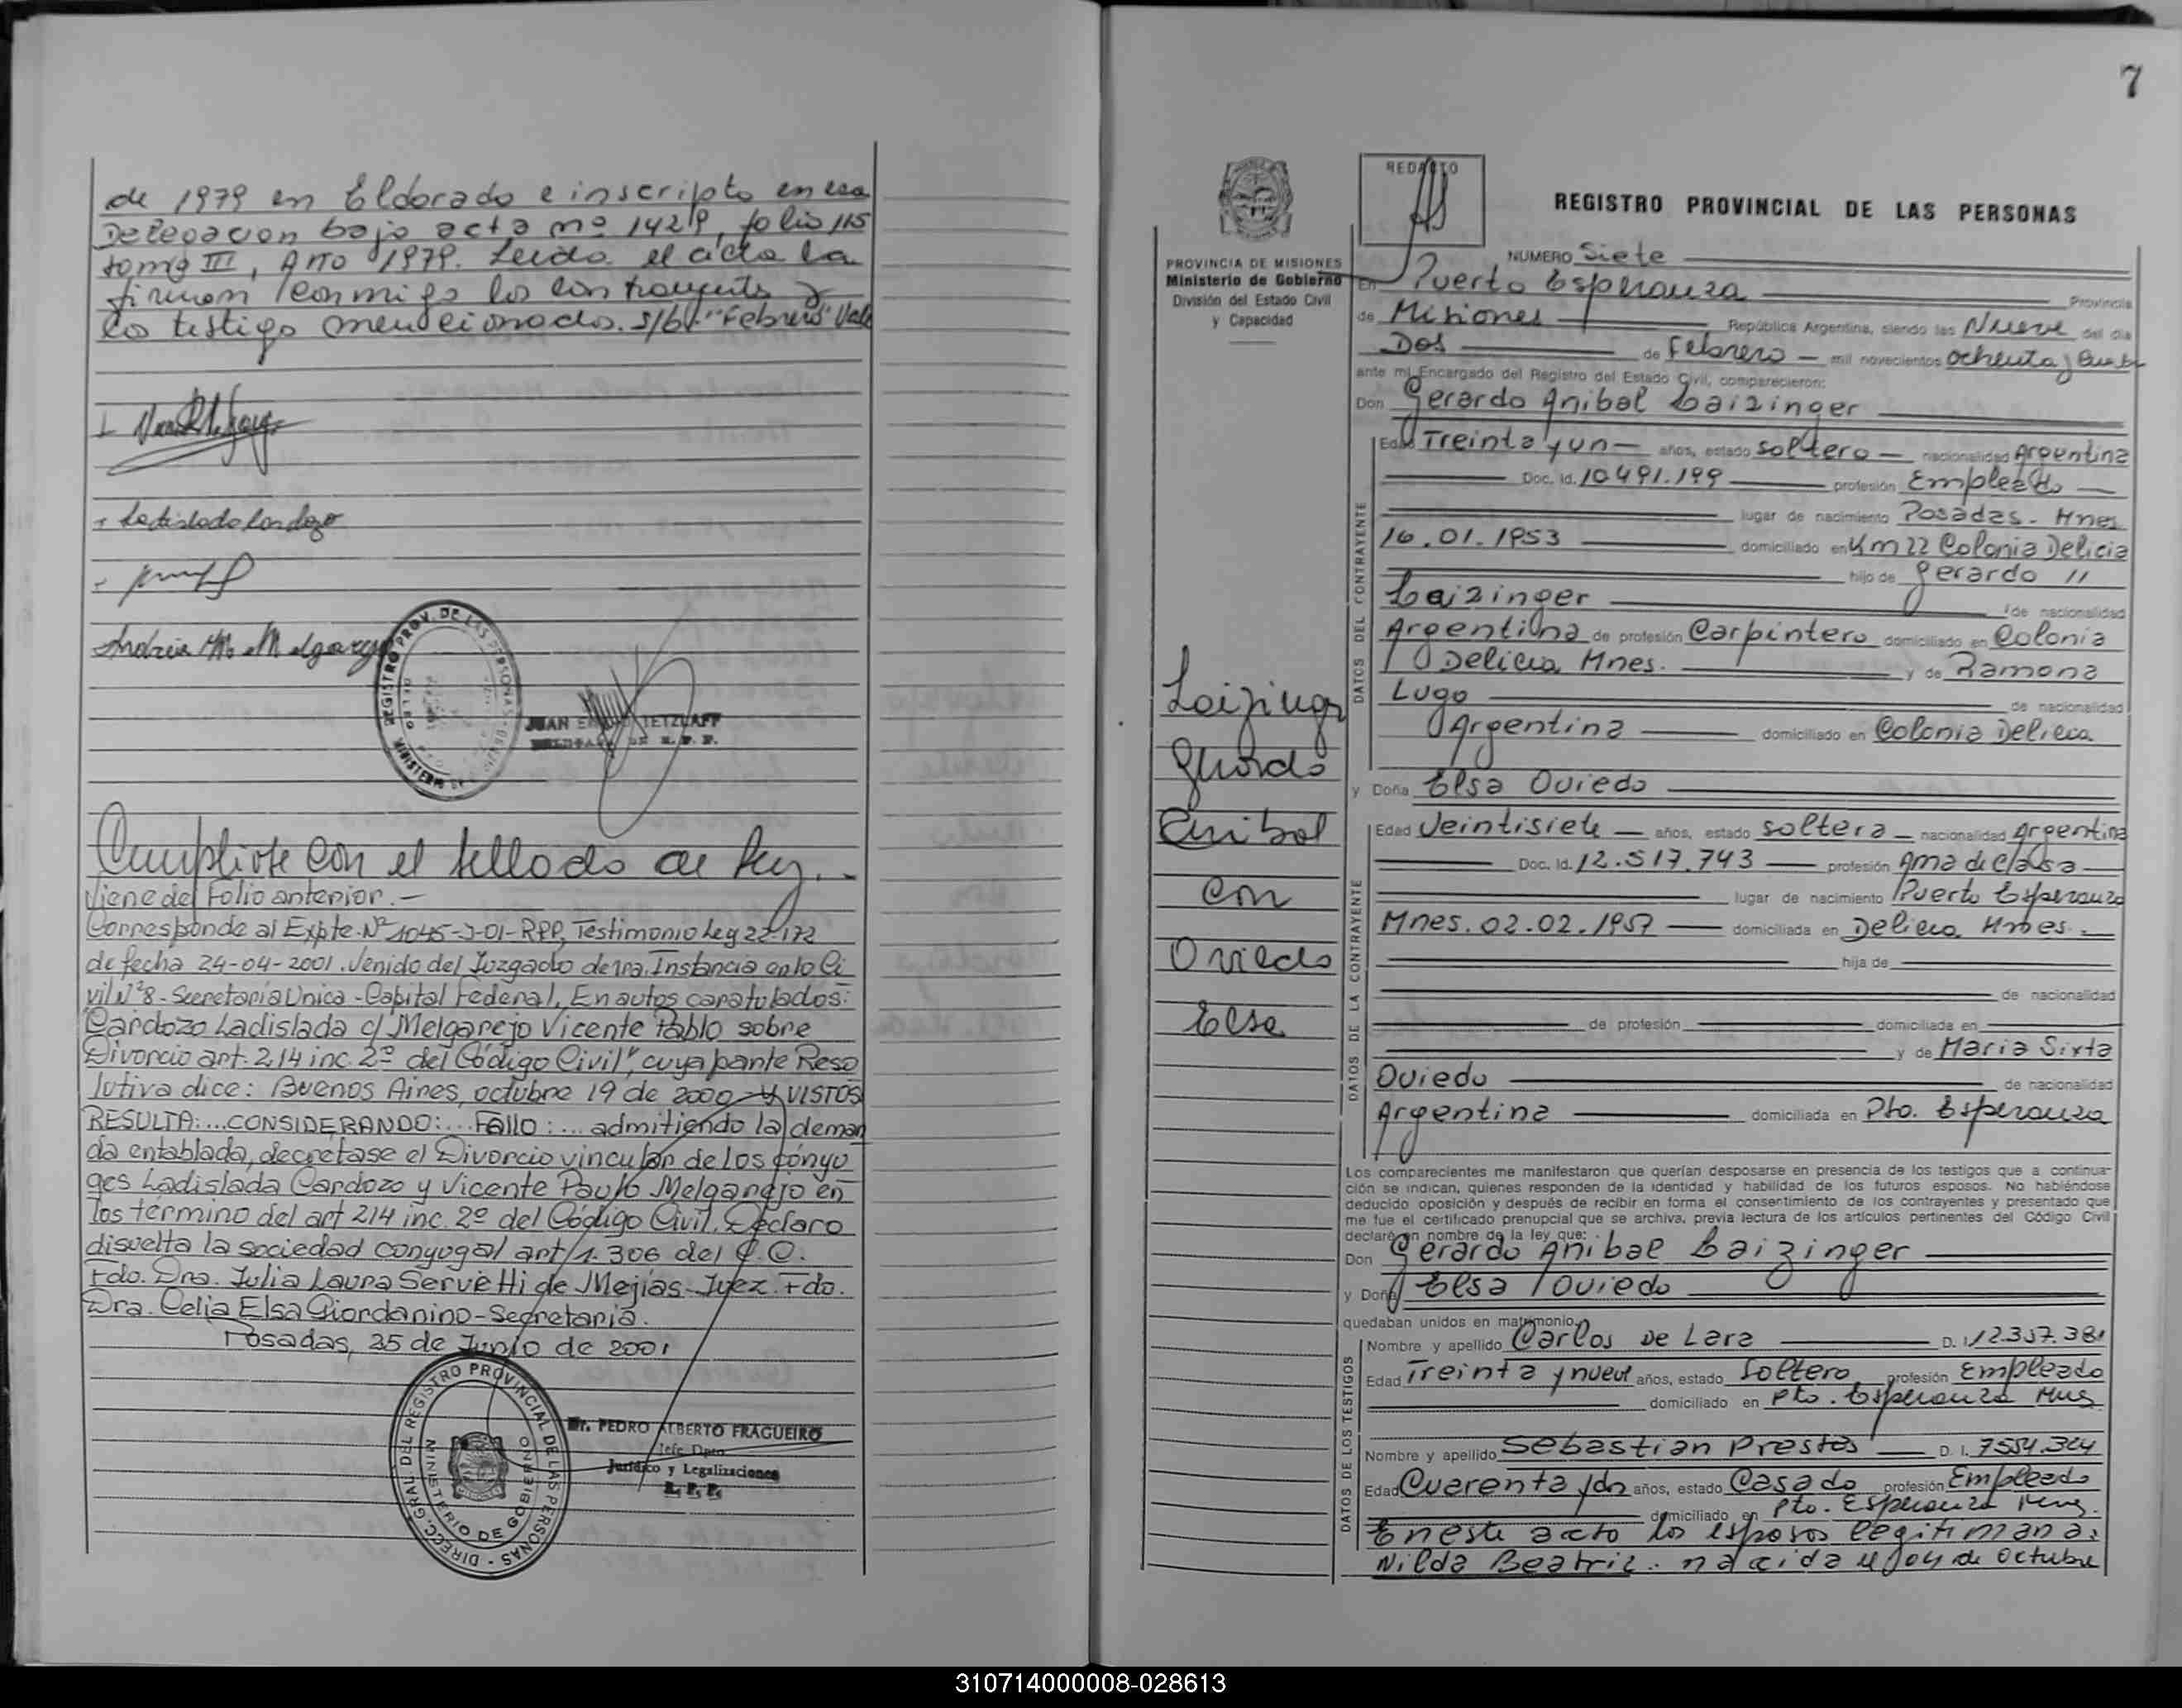 de 1979 en Eldorado e inscripto en esa
Delegacion bajo acta nº 1429, folio 115
tomo III, Año 1979. Leida el acta la
firman conmigo los contrayentes y
los testigo mencionados. s/b: "Febrero" Vale
Ladislada Cardozo
Andrea M. Melgarejo
REGISTRO PROV. DE LAS PERSONAS
JUAN TETZLAFF
R. P. P.
Cumpliose con el sellado de ley.-
Viene del Folio anterior.-
Corresponde al Expte. Nº 1045-J-01-RPP, Testimonio Ley 22-172
de fecha 24-04-2001. Venido del Juzgado de 1ra. Instancia en lo Ci
vil Nº 8 - Secretaría Unica - Capital Federal, En autos caratulados:
"Cardozo Ladislada c/ Melgarejo Vicente Pablo sobre
Divorcio art. 214 inc. 2º del Código Civil", cuya parte Reso
lutiva dice: Buenos Aires, octubre 19 de 2000 - Y VISTOS
RESULTA:...CONSIDERANDO:...Fallo:... admitiendo la deman
da entablada, decretase el Divorcio vincular de los cónyu
ges Ladislada Cardozo y Vicente Pablo Melgarejo en
los término del art 214 inc. 2º del Código Civil. Declaro
disuelta la sociedad conyugal art 1.306 del C.C.
Fdo. Dra. Julia Laura Servetti de Mejías - Juez. Fdo.
Dra. Celia Elsa Giordanino - Secretaria.
Posadas, 25 de Junio de 2001
DIREC. GRAL DEL REGISTRO PROVINCIAL DE LAS PERSONAS -
MINISTERIO DE GOBIERNO
Dr. PEDRO ALBERTO FRAGUEIRO
Jefe Dpto.
Jurídico y Legalizaciones
R. P. P.
7
REDACTO
REGISTRO PROVINCIAL DE LAS PERSONAS
PROVINCIA DE MISIONES
Ministerio de Gobierno
División del Estado Civil
y Capacidad
NUMERO Siete
En Puerto Esperanza Provincia
de Misiones República Argentina, siendo las Nueve del dia
Dos de Febrero mil novecientos ochenta y cuatro
ante mí Encargado del Registro del Estado Civil, comparecieron:
Don Gerardo Anibal Laizinger
DATOS DEL CONTRAYENTE
Edad Treinta y un años, estado soltero nacionalidad Argentina
Doc. Id. 10.491.199 profesión Empleado
lugar de nacimiento Posadas - Mnes
16.01.1953 domiciliado en Km 22 Colonia Delicia
hijo de Gerardo //
Laizinger de nacionalidad
Argentina de profesión Carpintero domiciliado en Colonia
Delicia Mnes. y de Ramona
Lugo de nacionalidad
Argentina domiciliado en Colonia Delicia
Laizinger
Gerardo
Anibal
con
Oviedo
Elsa
y Doña Elsa Oviedo
DATOS DE LA CONTRAYENTE
Edad Veintisiete años, estado soltera nacionalidad Argentina
Doc. Id. 12.517.743 profesión Ama de casa
lugar de nacimiento Puerto Esperanza
Mnes. 02.02.1957 domiciliada en Delicia Mnes.
hija de
de nacionalidad
de profesión domiciliada en
y de Maria Sixta
Oviedo de nacionalidad
Argentina domiciliada en Pto. Esperanza
Los comparecientes me manifestaron que querían desposarse en presencia de los testigos que a continua-
ción se indican, quienes responden de la identidad y habilidad de los futuros esposos. No habiéndose
deducido oposición y después de recibir en forma el consentimiento de los contrayentes y presentado que
me fue el certificado prenupcial que se archiva, previa lectura de los artículos pertinentes del Código Civil
declaré en nombre de la ley que:
Don Gerardo Anibal Laizinger
y Doña Elsa Oviedo
quedaban unidos en matrimonio.
DATOS DE LOS TESTIGOS
Nombre y apellido Carlos De Lara D. I. 12.357.381
Edad Treinta y nueve años, estado Soltero profesión Empleado
domiciliado en Pto. Esperanza Mnes
Nombre y apellido Sebastian Prestes D. I. 7.554.324
Edad Cuarenta y dos años, estado Casado profesión Empleado
domiciliado en Pto. Esperanza Mnes.
En este acto los esposos legitiman a:
Nilda Beatriz. nacida el 04 de Octubre
310714000008-028613